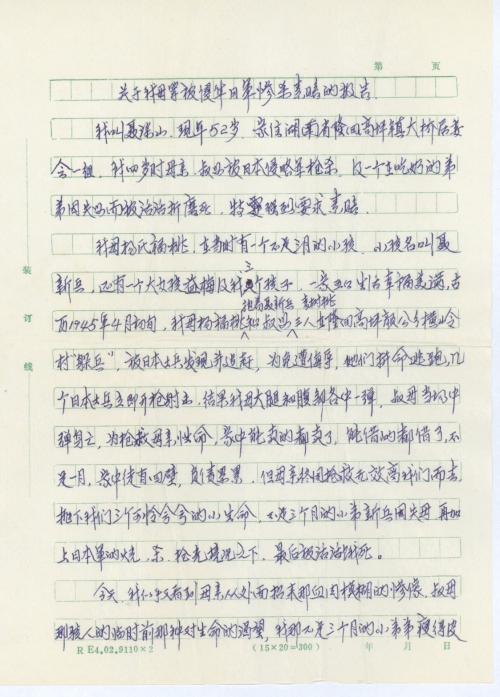 第 页
关于我母亲被侵华日军惨杀索赔的报告
我叫聂满山,现年52岁,家住湖南省隆回高坪镇大桥居委
会一组,我四岁时母亲、叔母被日本侵略军枪杀,及一个在吃奶的弟
弟因失母而被活活折磨死,特强烈要求索赔。
我母杨氏福桃,在当时有一个不足三月的小孩,小孩名叫聂
新兵,还有一个大女孩益梅及我三个孩子,一家五口生活幸福美满,古
历1945年4月初旬,我母杨福桃和叔母三人在隆回高坪颜公乡横岭
村“躲兵”,被日本士兵发现并追赶,为免遭侮辱,他们拼命逃跑,几
个日本士兵立即开枪射击,结果我母大腿和腹部各中一弹,叔母当场中
弹身亡,为抢救母亲性命,家中能卖的都卖了,能借的都借了,不
足一月,家中徒有四壁,负债累累,但母亲终因抢救无效离我们而去,
抛下我们三个可怜兮兮的小生命,不足三个月的小弟新兵因失母再加
上日本军的烧、杀、抢光境况之下,最后被活活饿死。
今天,我仿乎又看到母亲从外面抬来那血肉模糊的惨像,叔母
那骇人的临时前那种对生命的渴望,我那不足三个月的小弟弟瘦得皮
装
订
线
R E4.02.9110×2
(15×20=300)
年 月 日